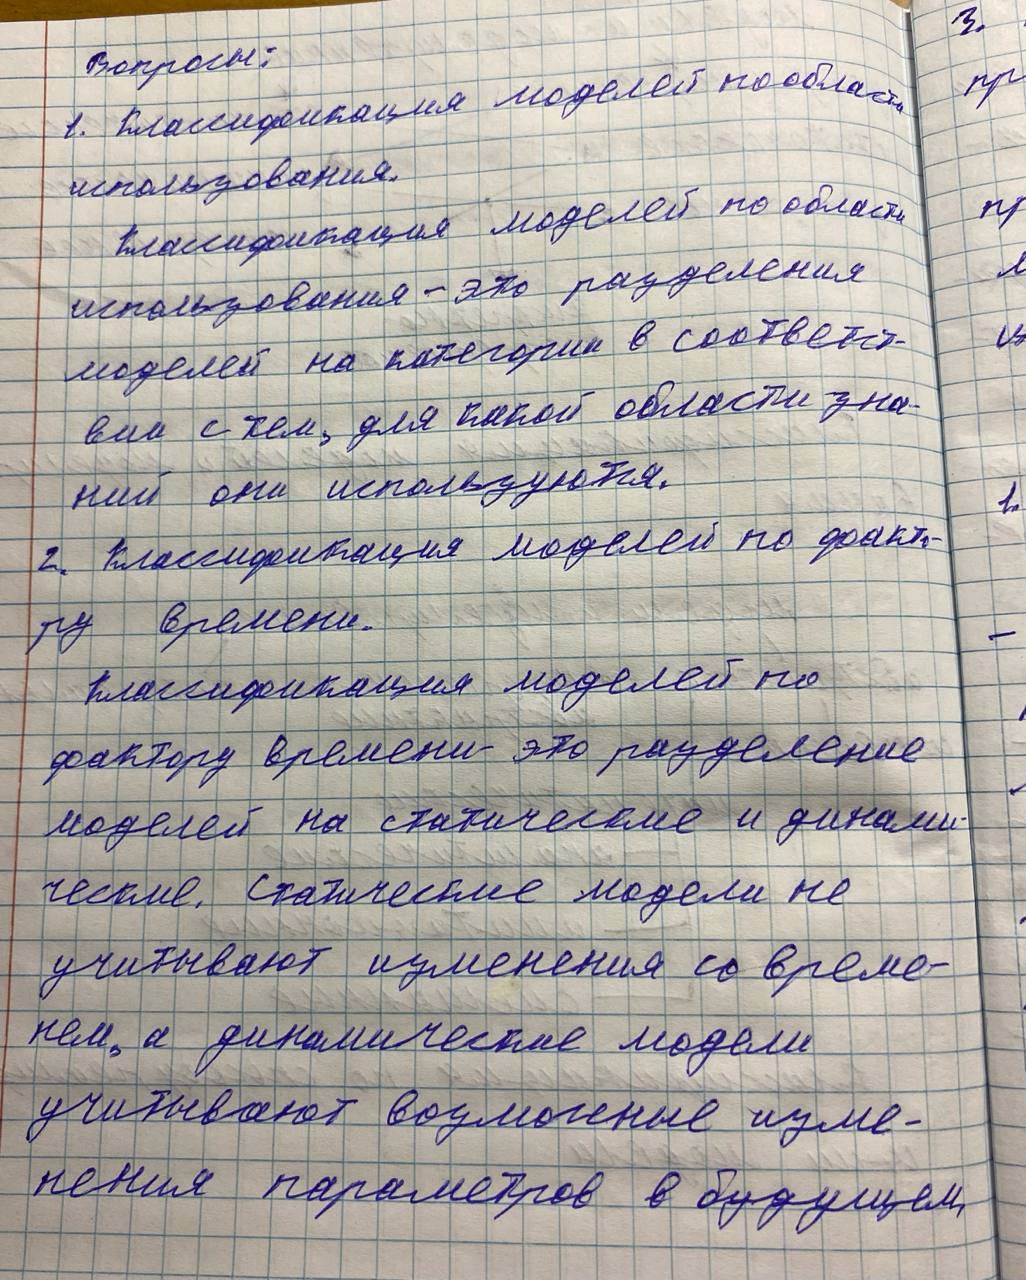 Вопросы:
1. Классификация моделей по области
использования.
Классификация моделей по области
использования - это разделения
моделей на категории в соответст-
вии с тем, для какой области зна-
ний они используются.
2. Классификация моделей по факто-
ру времени.
Классификация моделей по
фактору времени - это разделение
моделей на статические и динами-
ческие. Статические модели не
учитывают изменения со време-
нем, а динамические модели
учитывают возможные изме-
нения параметров в будущем.
3.
пр
пр
1.
-